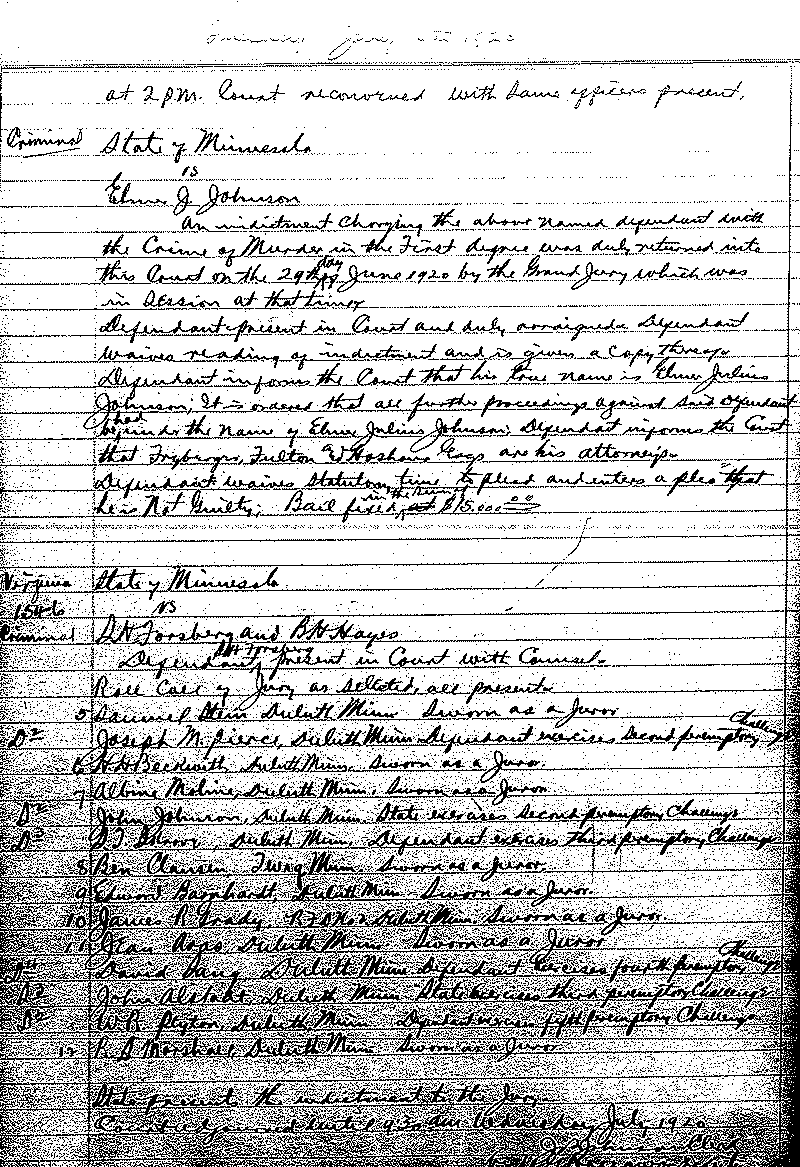 1920
at 2 P.M. Court reconvened with same officers present.
Criminal State of Minnesota
vs
Elmer J. Johnson
An indictment charging the above named defendant with
the Crime of Murder in the First degree was duly returned into
this Court on the 29th day of June 1920 by the Grand Jury which was
in session at that time
Defendant present in Court and duly arraigned. Defendant
waives reading of indictment and is given a copy thereof.
Defendant informs the Court that his true name is Elmer Julius
Johnson; It is ordered that all further proceedings against said Defendant
be had under the name of Elmer Julius Johnson; Defendant informs the Court
that Fryberger, Fulton Esqs. are his attorneys.
Defendant waives Statutory time to plead and enters a plea that
he is Not Guilty; Bail fixed in the sum of $15,000 00
Virginia State of Minnesota
vs
Criminal Forsberg and B H Hayes
Defendant Forsberg present in Court with Counsel.
Roll Call of Jury as selected, all present.
5 Samuel Stein Duluth Minn Sworn as a Juror
Joseph M. Pierce, Duluth Minn Defendant exercises second peremptory Challenge
6 H H Beckwith, Duluth Minn, Sworn as a Juror.
7 Albin Duluth Minn, Sworn as a Juror
John Johnson, Duluth Minn State exercises second peremptory Challenge
Duluth Minn, Defendant exercises third peremptory Challenge
8 Ben Clausen Minn, Sworn as a Juror.
9 Edward Barnhardt, Duluth Minn Sworn as a Juror.
10 James R. Grady, Duluth Minn Sworn as a Juror.
11 Duluth Minn Sworn as a Juror
David Duluth Minn Defendant Exercises fourth peremptory Challenge
John Duluth Minn State exercises third peremptory Challenge
W. R. Peyton, Duluth Minn Defendant exercises fifth peremptory Challenge
12 Marshall, Duluth Minn Sworn as a Juror
State present the indictment to the Jury.
Court adjourned until 9:30 AM Wednesday July 1920
Clerk